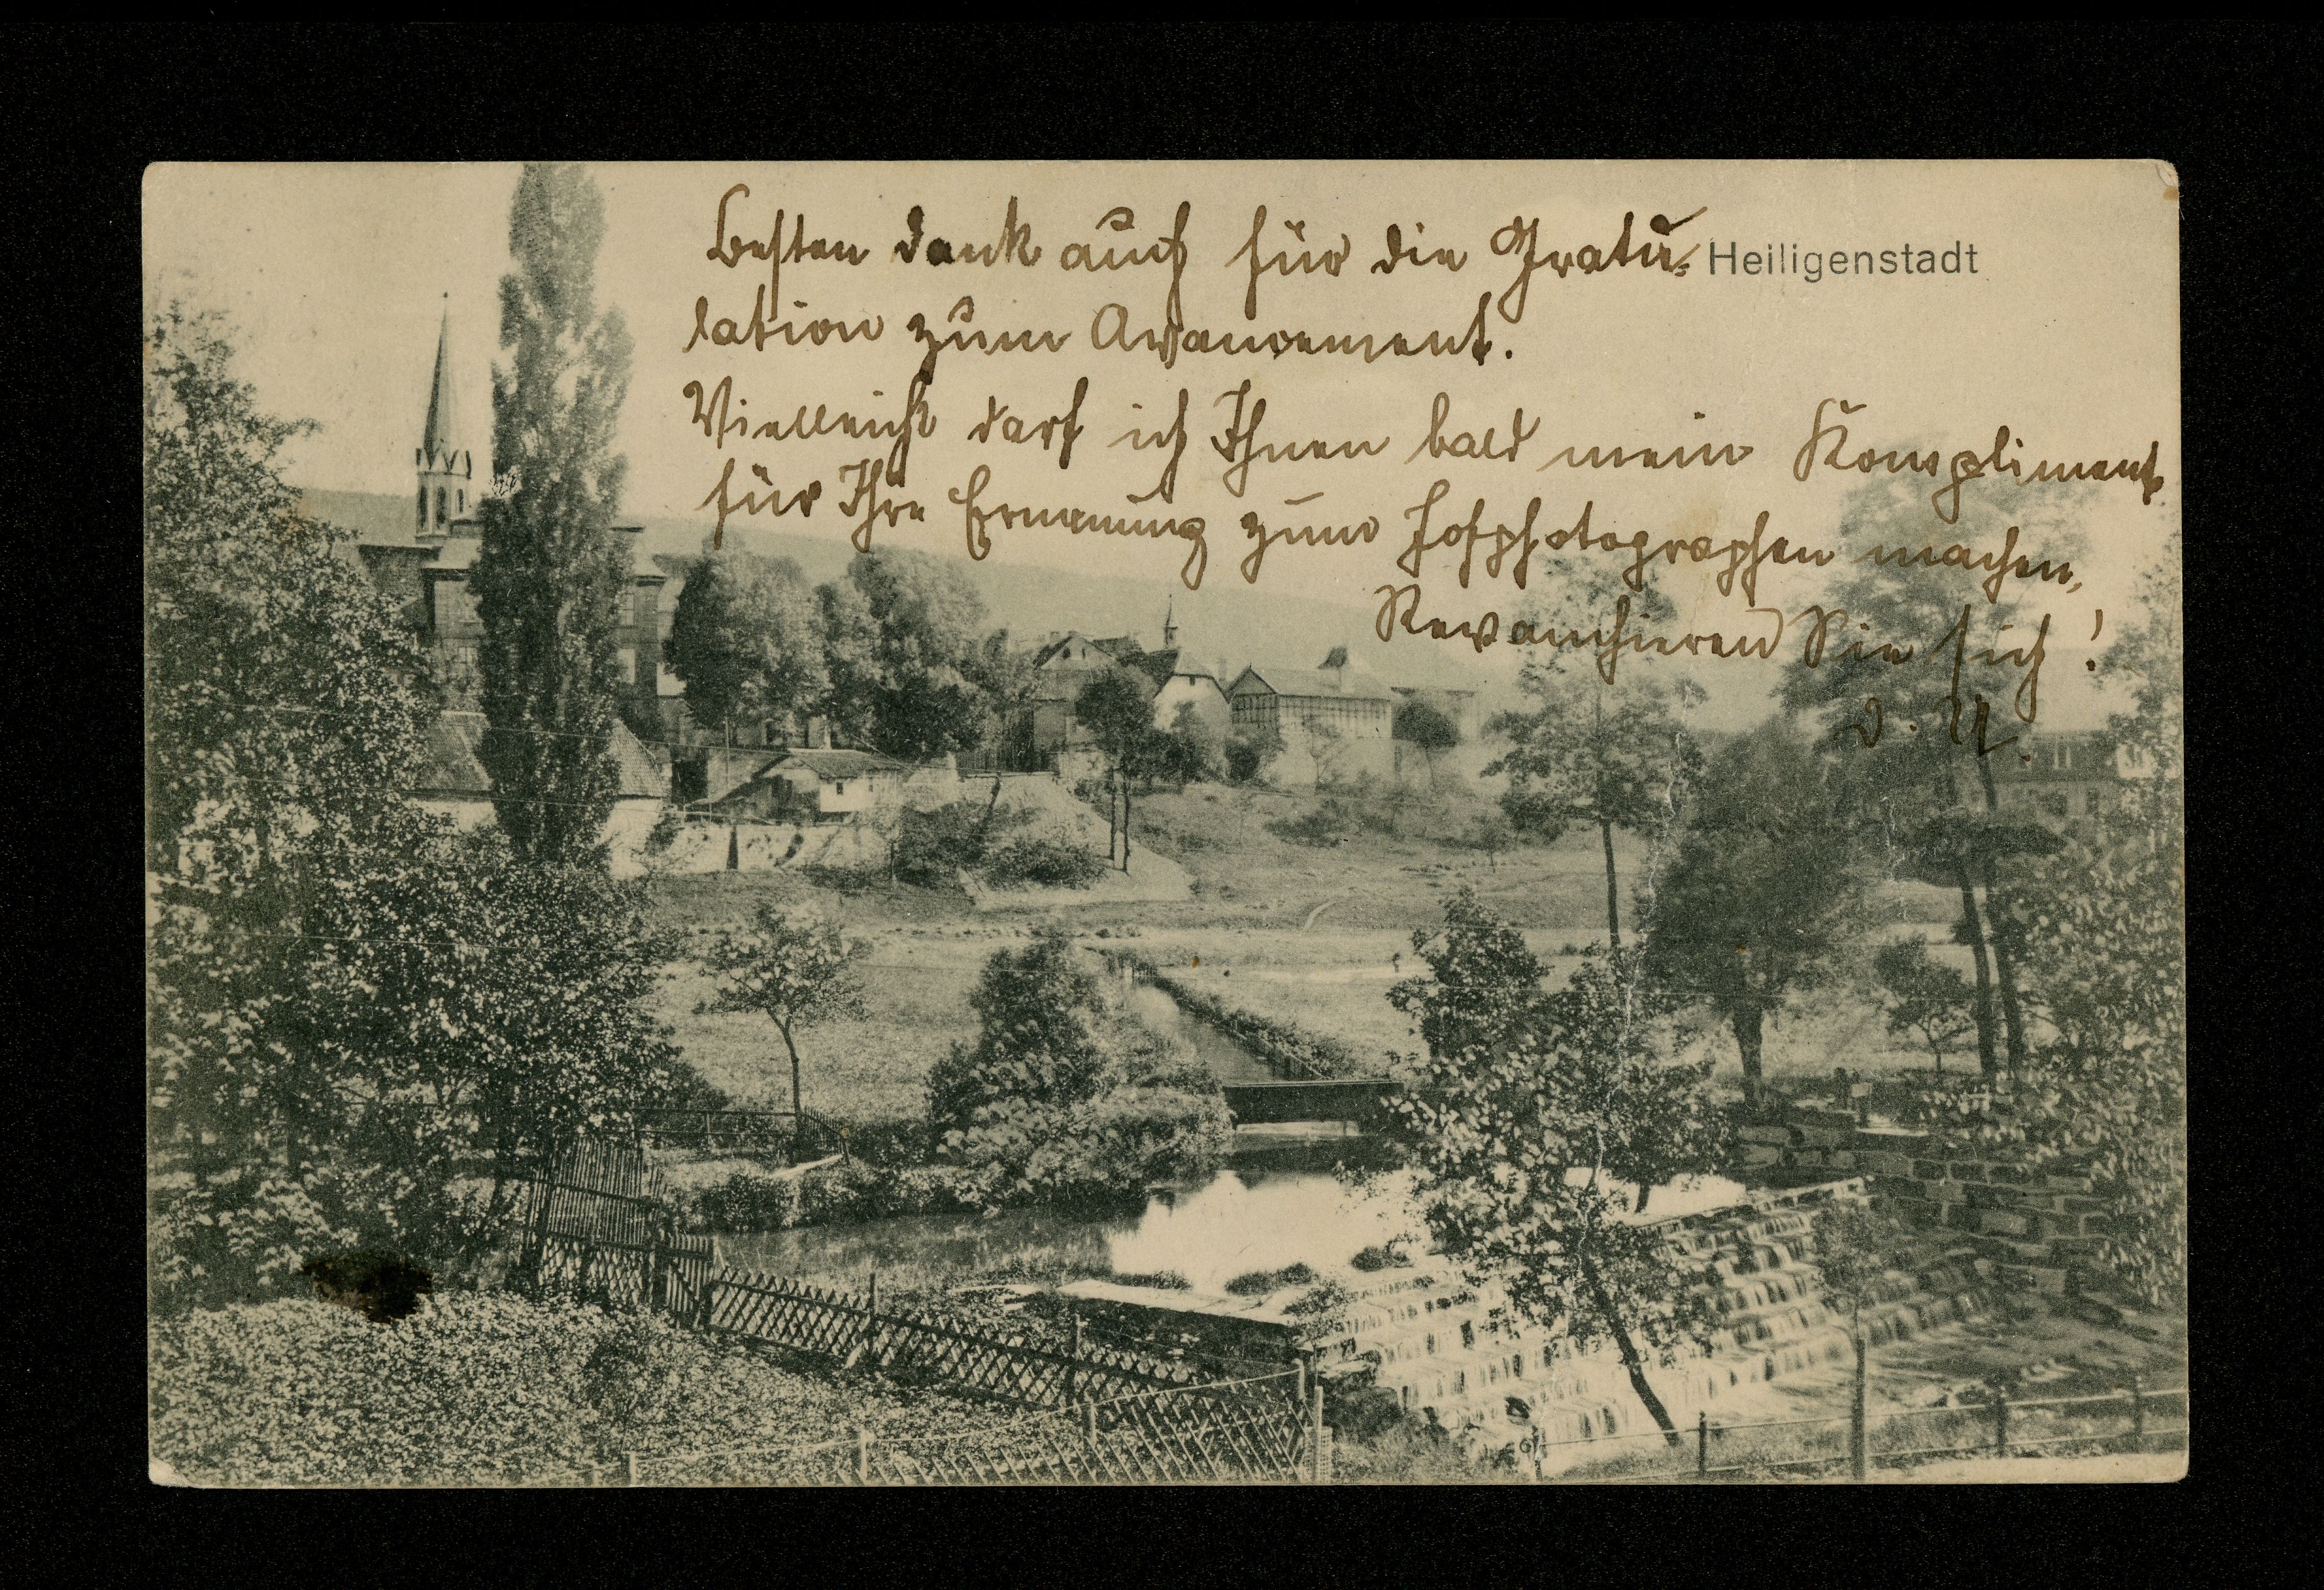 Besten Dank auch für die Gratu-
Heiligenstadt
lation zum Avancement.
Vielleicht darf ich Ihnen bald mein Kompliment
für Ihre Ernennung zum Hofphotographen machen,
Revanchieren Sie sich!
D. U.